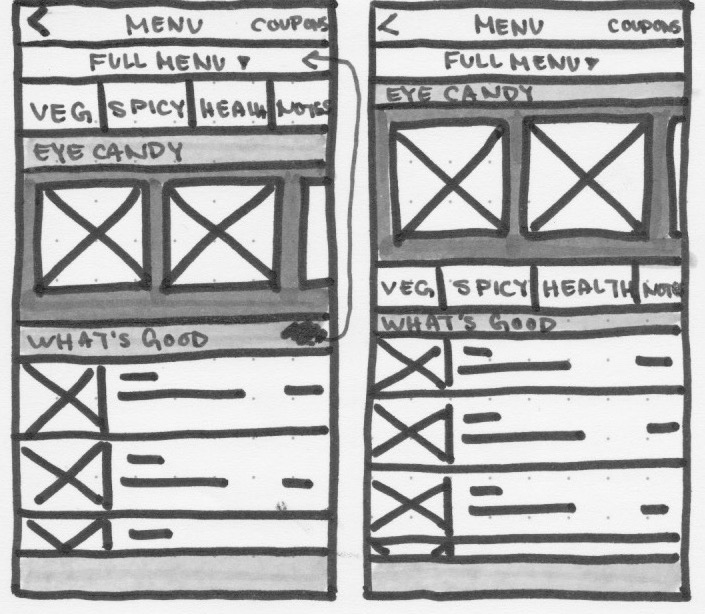 < MENU COUPONS
FULL MENU ▼
VEG SPICY HEALTH NOTES
EYE CANDY
WHAT'S GOOD
< MENU COUPONS
FULL MENU ▼
EYE CANDY
VEG SPICY HEALTH NOTES
WHAT'S GOOD